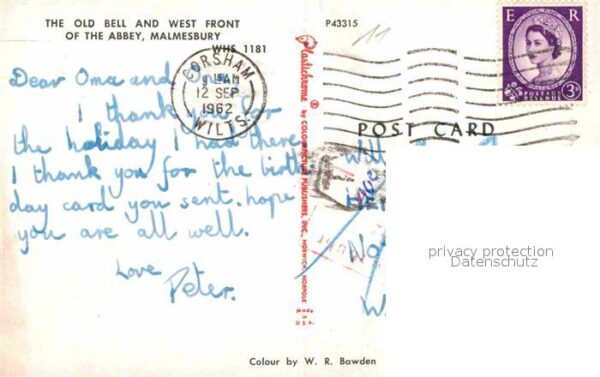 THE OLD BELL AND WEST FRONT
OF THE ABBEY, MALMESBURY
WHS 1181
P43315
11
E R
POSTAGE
REVENUE
3D
CORSHAM
9 15AM
12 SEP
1962
WILTS.
POST CARD
Dear Oma and
I thank you for
the holiday I had there
I thank you for the birth-
day card you sent. hope
you are all well.
Love
Peter.
Plastichrome ® by COLOURPICTURE PUBLISHERS, INC., NORWICH, NORFOLK
Made
in
U.S.A.
No
W
privacy protection
Datenschutz
Colour by W. R. Bawden